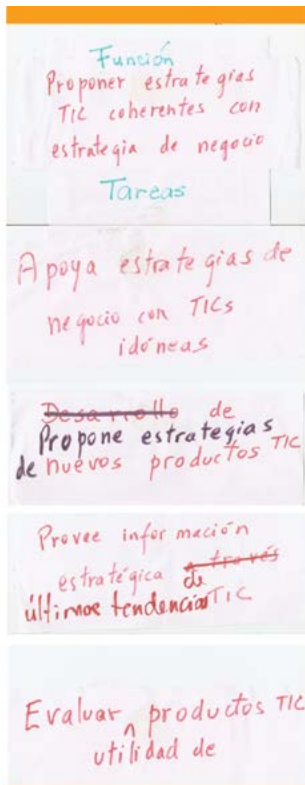 Función
Proponer estrategias
TIC coherentes con
estrategia de negocio
Tareas
Apoya estrategias de
negocio con TICs
idóneas
Desarrollo de
Propone estrategias
de nuevos productos TIC
Provee información
estratégica a través
de
últimas tendencias TIC
Evaluar ^ productos TIC
utilidad de